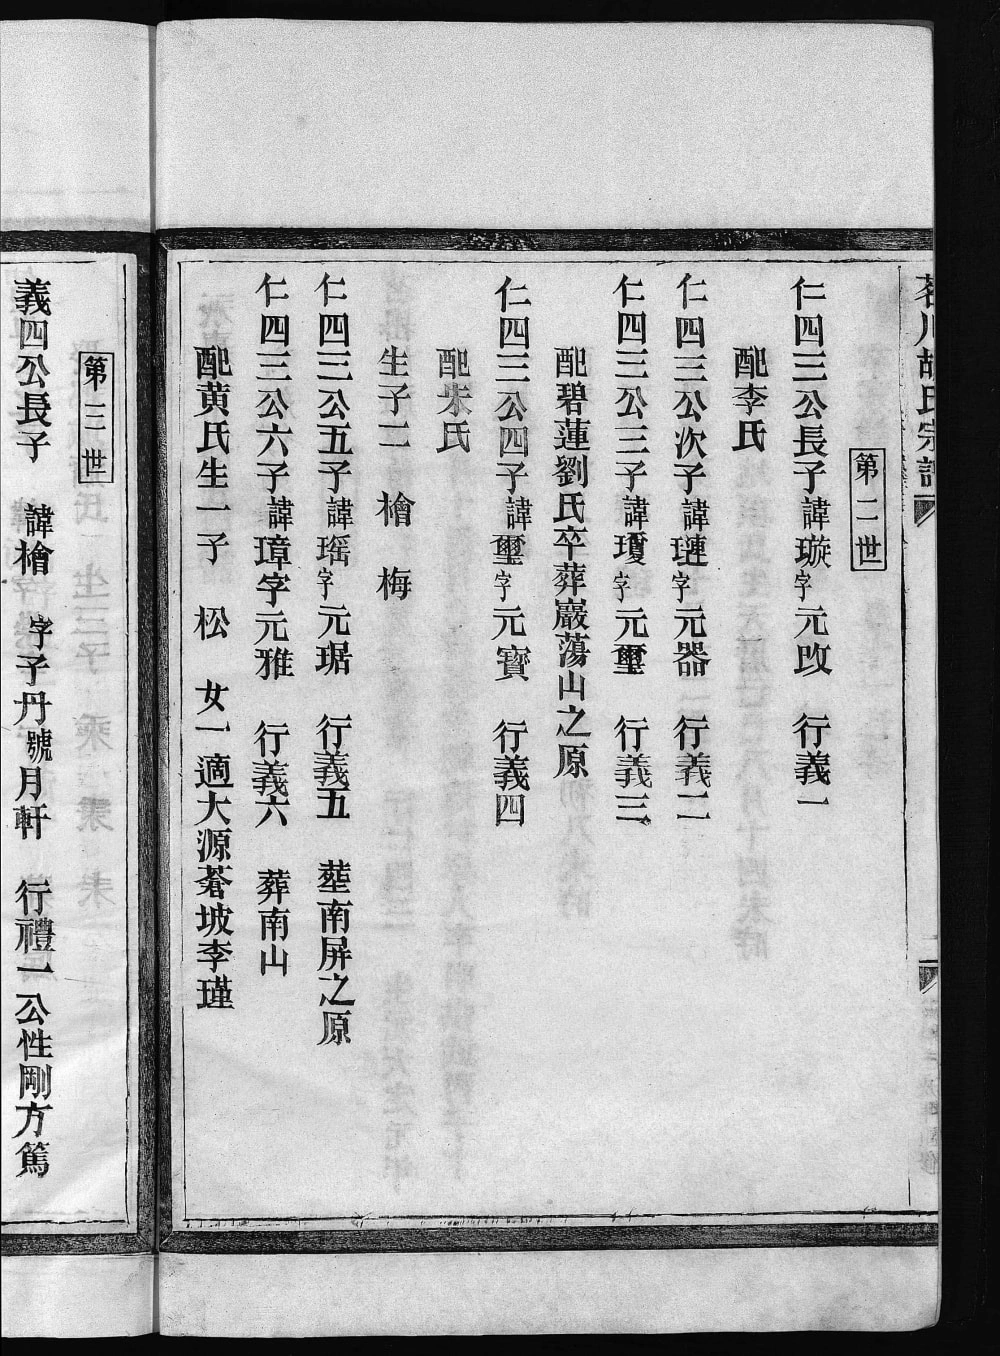 茗川胡氏宗譜
第二世
仁四三公長子諱璇字元改　行義一
配李氏
仁四三公次子諱璉字元器　行義二
仁四三公三子諱瓊字元璽　行義三
配碧蓮劉氏卒葬巖蕩山之原
仁四三公四子諱璽字元寶　行義四
配朱氏
生子二　檜　梅
仁四三公五子諱瑶字元琚　行義五　塟南屏之原
仁四三公六子諱璋字元雅　行義六　葬南山
配黄氏生一子　松　女一適大源蒼坡李瑾
第三世
義四公長子　諱檜　字子丹號月軒　行禮一公性剛方篤